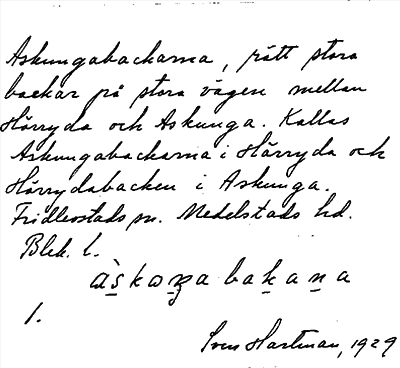 Askungabackarna, rätt stora
backar på stora vägen mellan
Härryda och Askunga. Kallas
Askungabackarna i Härryda och
Härrydabacken i Askunga.
Fridlevstads sn. Medelstads hd.
Blek. l.
bakana
1.
Sven Hartman, 1929